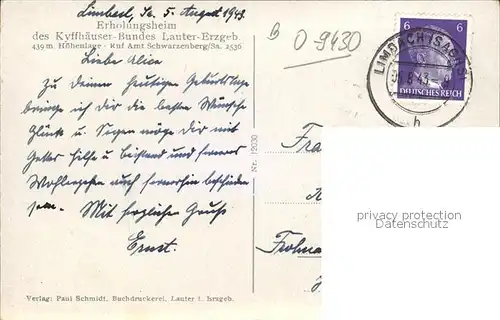 Limbach, Sa. 5. August 1943.
Erholungsheim
des Kyffhäuser-Bundes Lauter-Erzgeb.
439 m Höhenlage · Ruf Amt Schwarzenberg/Sa. 2536
B 09430
6 6
LIMBACH (SACHS)
8.43
DEUTSCHES REICH
h
Liebe Alice
Zu Deinem heutigen Geburtstage
bringe ich Dir die besten Wünsche
Glück u. Segen möge Dir mit
Gottes Hilfe u. Beistand und ferneres
Wohlergehen auch fernerhin beschieden
sein. Mit herzlichen Gruß
Ernst.
Nr. 12030
Fra
privacy protection
Datenschutz
Frohna
Verlag: Paul Schmidt, Buchdruckerei, Lauter i. Erzgeb.